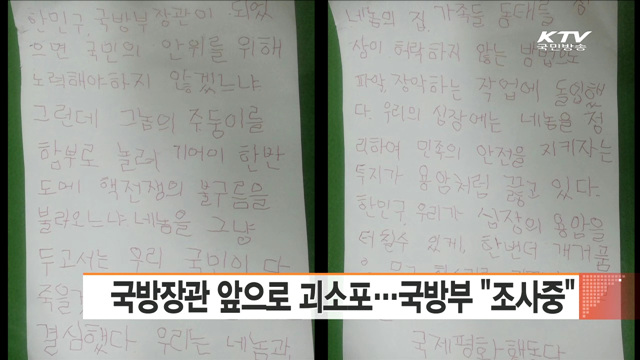 한민구 국방부장관이 되었
으면 국민의 안위를 위해
노력해야하지 않겠느냐
그런데 그놈의 주둥이를
함부로 놀려 기어이 한반
도에 핵전쟁의 불구름을
불러오느냐 네놈을 그냥
두고서는 우리 국민이 다
결심했다 우리는 네놈과
네놈의 집, 가족들 동태를
상이 허락하지 않는 방법으로
파악, 장악하는 작업에 돌입했
다. 우리의 심장에는 네놈을 정
리하여 민족의 안전을 지키자는
투지가 용암처럼 끓고 있다.
한민구, 우리가 심장의 용암을
터칠수 있게, 한번더 개거품
국제평화행동단
KTV
국민방송
국방장관 앞으로 괴소포…국방부 "조사중"